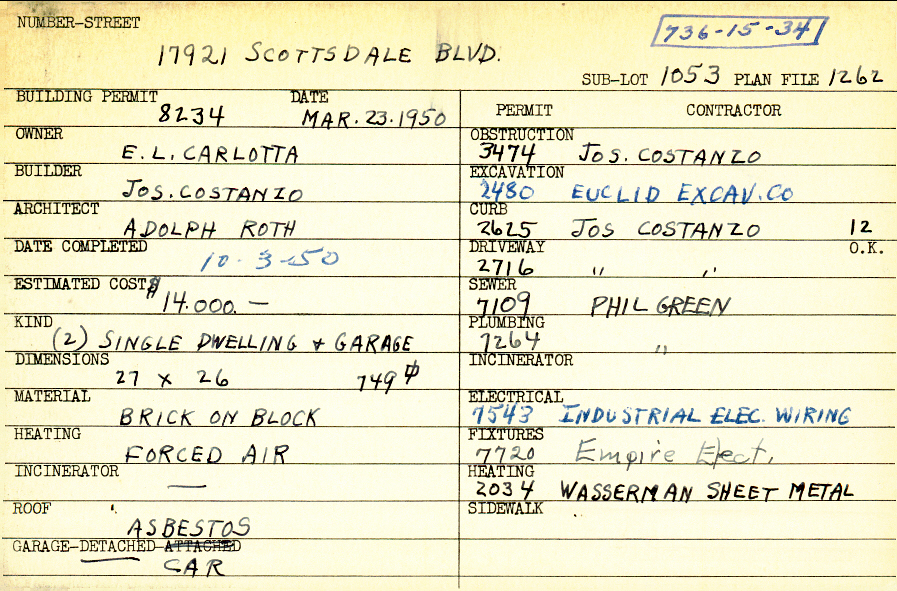 NUMBER-STREET
736-15-34
17921 SCOTTSDALE BLVD.
SUB-LOT 1053 PLAN FILE 1262
BUILDING PERMIT DATE
8234 MAR. 23. 1950
OWNER
E. L. CARLOTTA
BUILDER
JOS. COSTANZO
ARCHITECT
ADOLPH ROTH
DATE COMPLETED
10-3-50
ESTIMATED COST $
14.000. —
KIND
(2) SINGLE DWELLING & GARAGE
DIMENSIONS
27 x 26 749
MATERIAL
BRICK ON BLOCK
HEATING
FORCED AIR
INCINERATOR
—
ROOF
ASBESTOS
GARAGE-DETACHED-ATTACHED
CAR
PERMIT CONTRACTOR
OBSTRUCTION
3474 JOS. COSTANZO
EXCAVATION
2480 EUCLID EXCAV. CO
CURB
2625 JOS COSTANZO 12
DRIVEWAY O.K.
2716 " "
SEWER
7109 PHIL GREEN
PLUMBING
7264 "
INCINERATOR
ELECTRICAL
7543 INDUSTRIAL ELEC. WIRING
FIXTURES
7720 Empire Elect.
HEATING
2034 WASSERMAN SHEET METAL
SIDEWALK